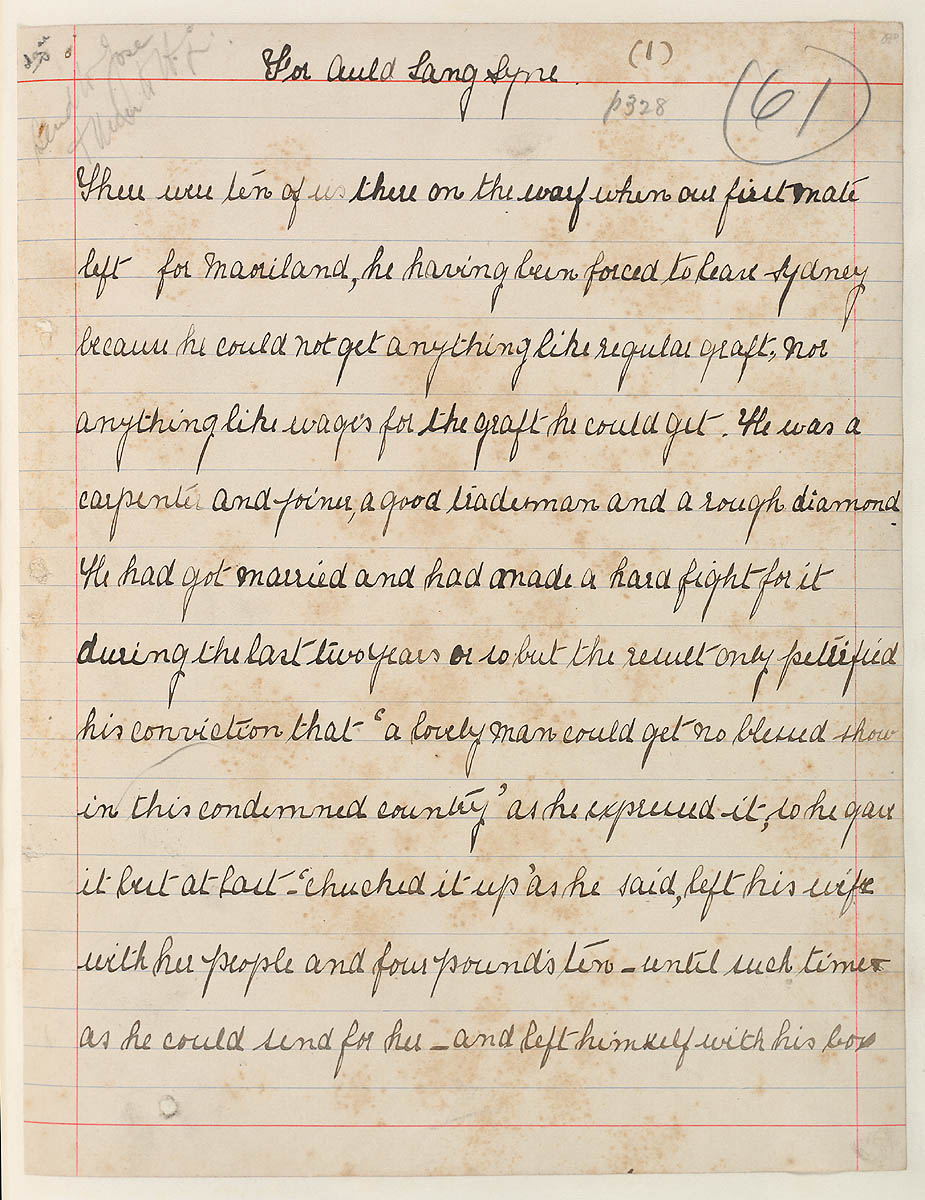 For Auld Lang Syne.
(1)
p328
(61)
There were ten of us there on the warf when our first mate
left for Maoriland, he having been forced to leave Sydney
because he could not get anything like regular graft, nor
anything like wages for the graft he could get. He was a
carpenter and joiner, a good tradesman and a rough diamond.
He had got married and had made a hard fight for it
during the last two years or so but the result only petrified
his conviction that 'a lovely man could get no blessed show
in this condemned country' as he expressed it, so he gave
it best at last – 'chucked it up' as he said, left his wife
with her people and four pounds ten – until such time
as he could send for her – and left himself with his box